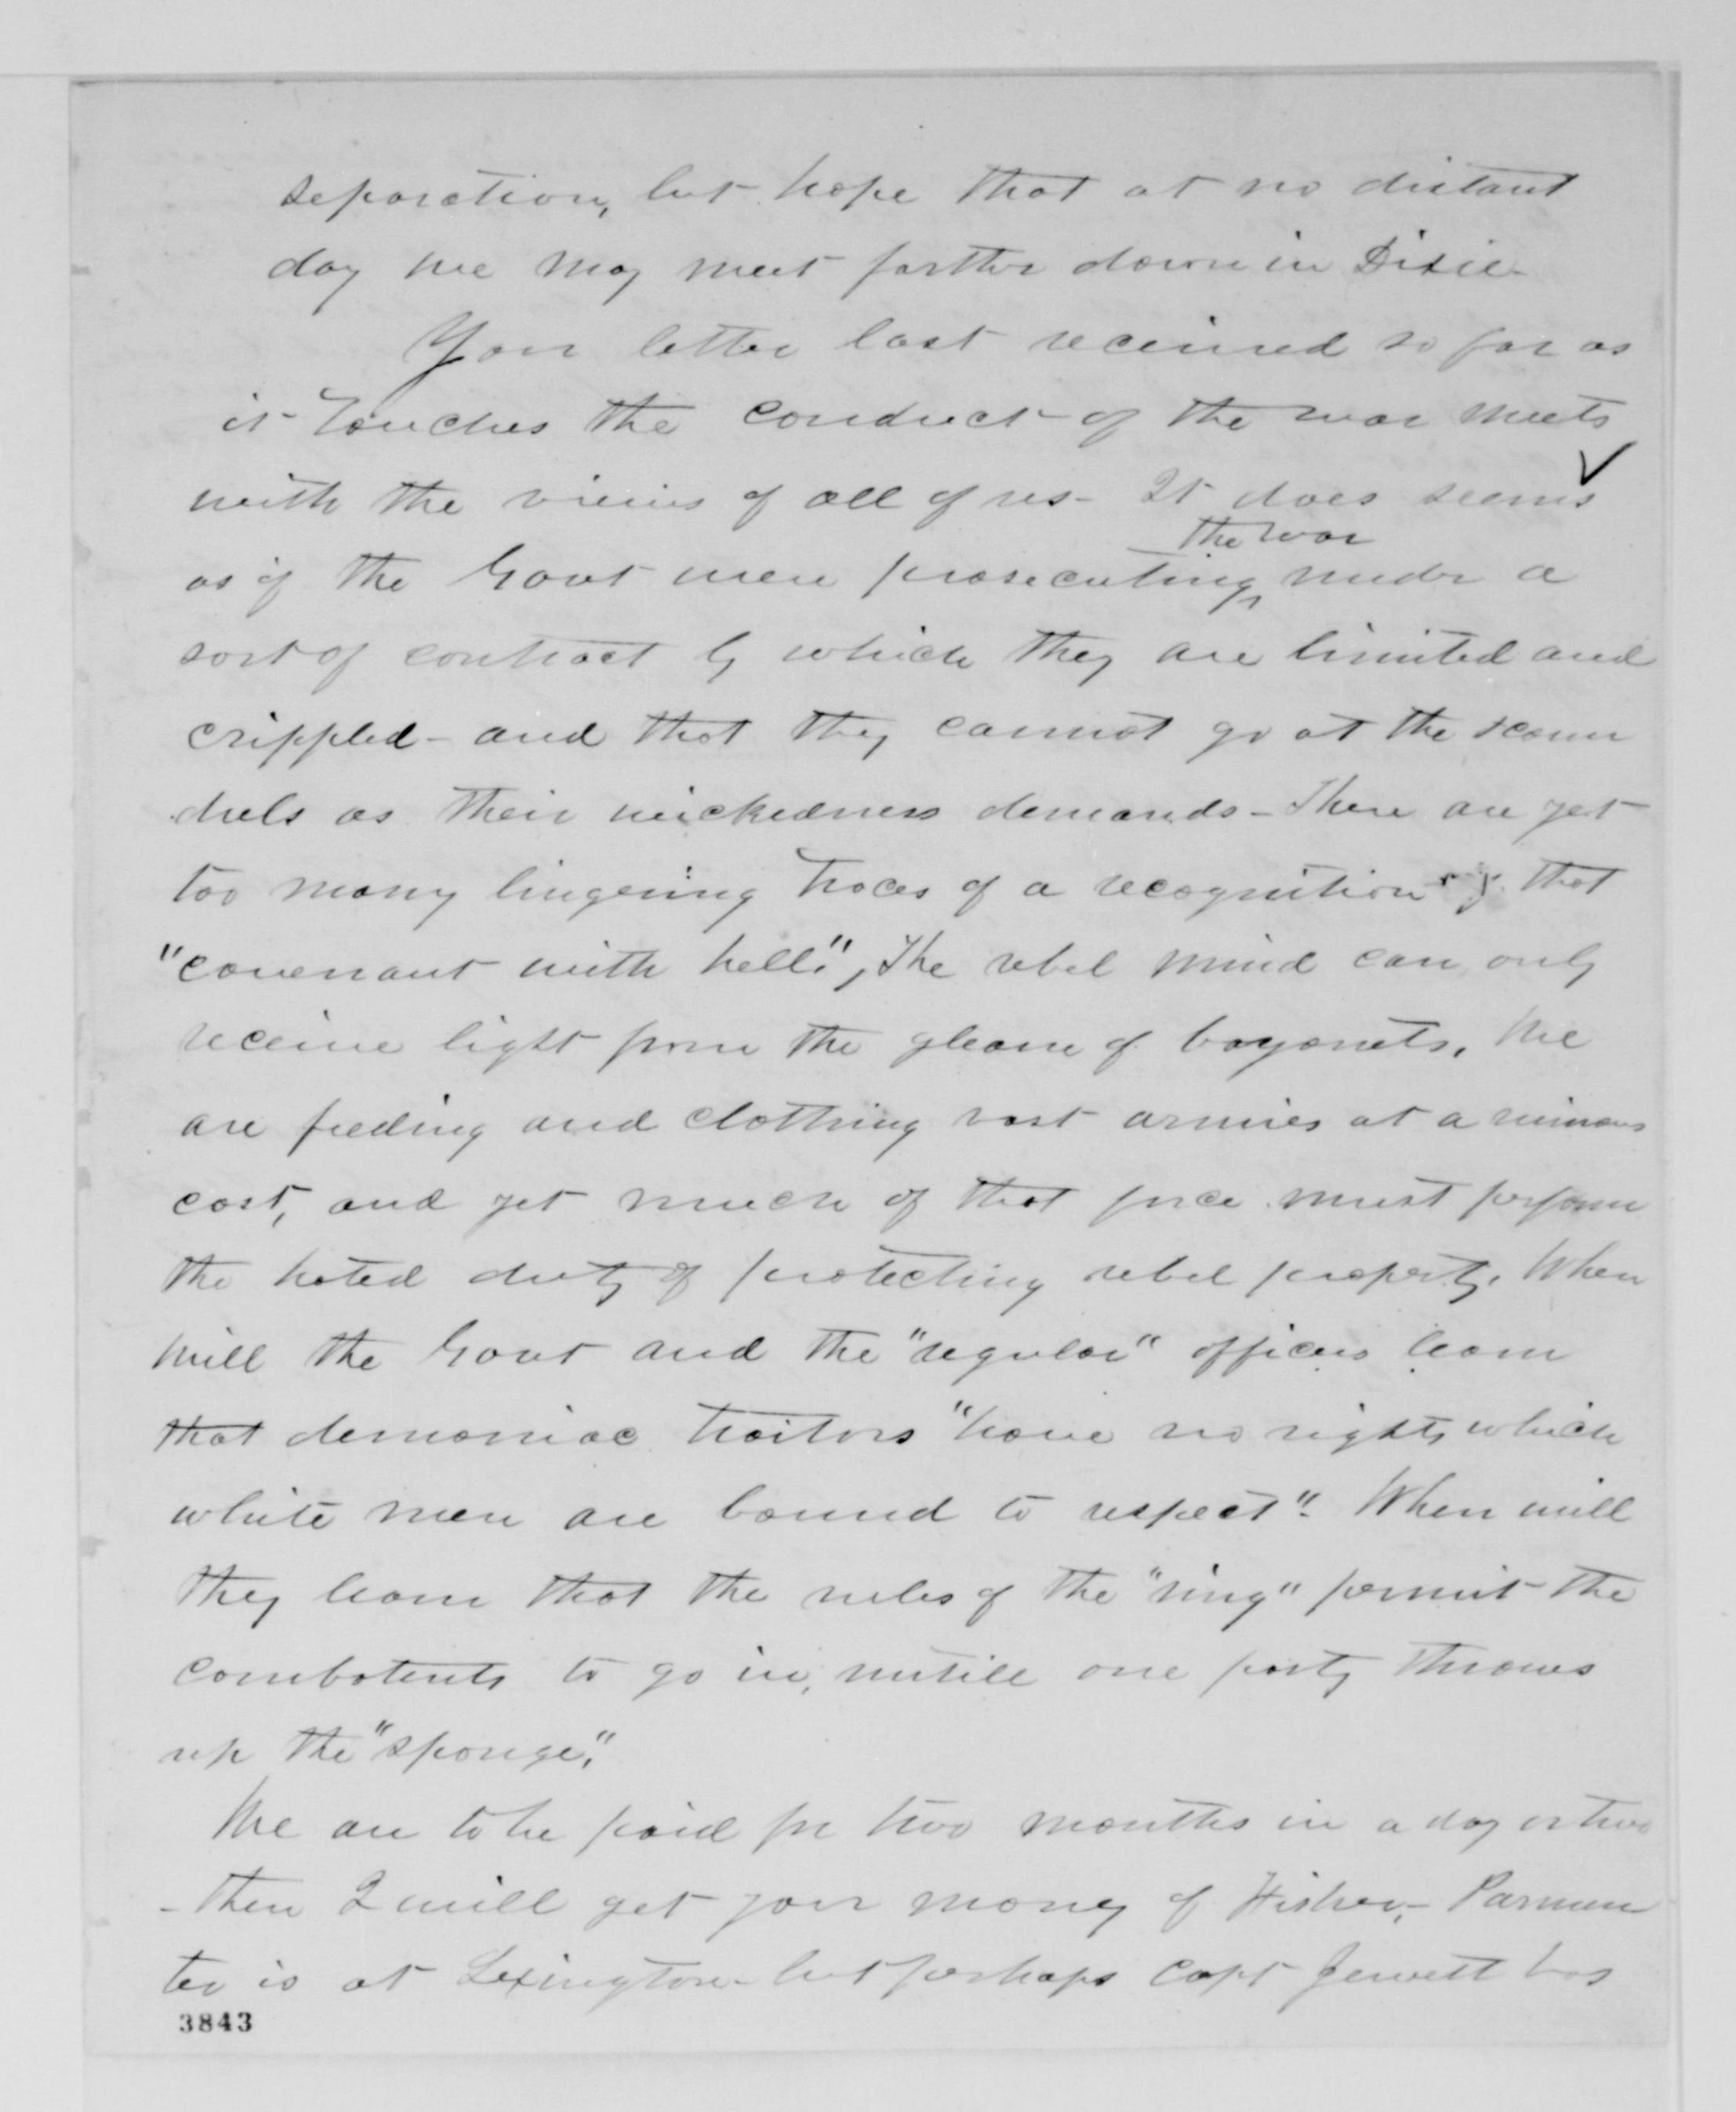 separation, but hope that at no distant
day we may meet farther down in Dixie-
Your letter last received so far as
it touches the conduct of the war meets
with the views of all of us- It does seems
the war
as if the Govt were prosecuting, under a
sort of contract by which they are limited and
crippled- and that they cannot go at the scoun
drels as their wickedness demands- There are yet
too many lingering traces of a recognition of that
"covenant with hell." The rebel mind can only
receive light from the gleam of bayonets. We
are feeding and clothing vast armies at a ruinous
cost, and yet much of that force must perform
the hated duty of protecting rebel property. When
will the Govt and the "regular" officers learn
that demoniac traitors "have no rights which
white men are bound to respect". When will
they learn that the rules of the "ring" permit the
combatents to go in, untill one party throws
up the "sponge."
We are to be paid for two months in a day or two
- then I will get your money of Fisher,- Parmen
ter is at Lexington- but perhaps Capt Jewett has
3843